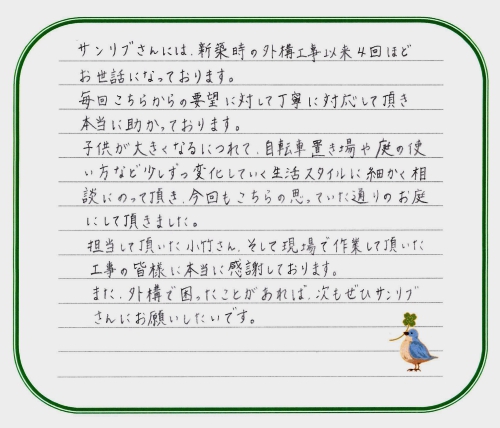 サンリブさんには、新築時の外構工事以来4回ほど
お世話になっております。
毎回こちらからの要望に対して丁寧に対応して頂き
本当に助かっております。
子供が大きくなるにつれて、自転車置き場や庭の使
い方など少しずつ変化していく生活スタイルに細かく相
談にのって頂き、今回もこちらの思っていた通りのお庭
にして頂きました。
担当して頂いた小竹さん、そして現場で作業して頂いた
工事の皆様に本当に感謝しております。
また、外構で困ったことがあれば、次もぜひサンリブ
さんにお願いしたいです。